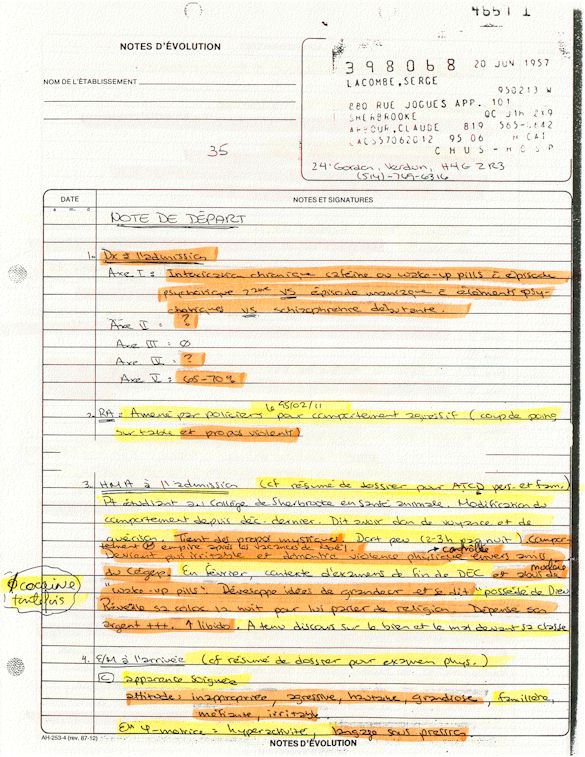 46511
NOTES D'ÉVOLUTION
398068 20 JUN 1957
LACOMBE, SERGE
NOM DE L'ÉTABLISSEMENT
950213
880 RUE JOGUES APP. 101
SHERBROOKE QC J1H 2Y9
ARBOUR, CLAUDE 819 565-
LACS57062012 95 06 CAT
CHUS - HOSP
35
24 Gordon, Verdun, H4G 2R3
(514)-769-6316
DATE NOTES ET SIGNATURES
NOTE DE DÉPART
1- Dx à l'admission
Axe I : Intoxication chronique caféine ou wake-up pills c̄ épisode
psychotique 2aire vs épisode maniaque c̄ éléments psy-
chotiques vs schizophrénie débutante.
Axe II : ?
Axe III : ∅
Axe IV : ?
Axe V : 65-70%
le 95/02/11
2- RA : Amené par policiers pour comportement agressif (coup de poing
sur table et propos violents)
3. HMA à l'admission (cf résumé de dossier pour ATCD pers. et fam.)
Pt étudiant au Collège de Sherbrooke en santé animale. Modification du
comportement depuis déc. dernier. Dit avoir don de voyance et de
guérison. Tient des propos mystiques. Dort peu (2-3h par nuit). Compor-
tement empire après les vacances de Noël.
Devient + irritable et démontre violence physique contrôlée envers amis
du Cégep. En février, contexte d'examens de fin de DEC et abus modéré de
"wake-up pills". Développe idées de grandeur et se dit "possédé de Dieu"
∅ cocaïne
toutefois
Réveille sa coloc la nuit pour lui parler de religion. Dépense son
argent +++. ↑ libido. A tenu discours sur le bien et le mal devant sa classe
4. E/M à l'arrivée (cf résumé de dossier pour examen phys.)
C apparence soignée
attitude : inappropriée, agressive, hautaine, grandiose, familière,
méfiante, irritable.
En ψ-motrice = hyperactivité, langage sous pression
AH-253-4 (rev. 87-12)
NOTES D'ÉVOLUTION